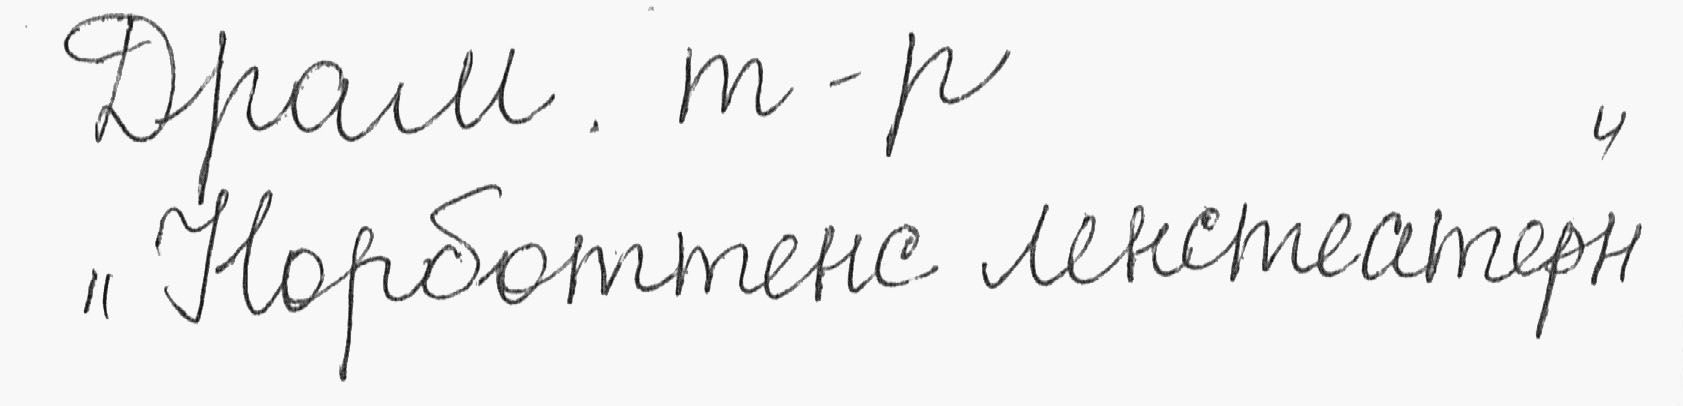 Драм. т-р
„Норботтенс ленстеатерн"